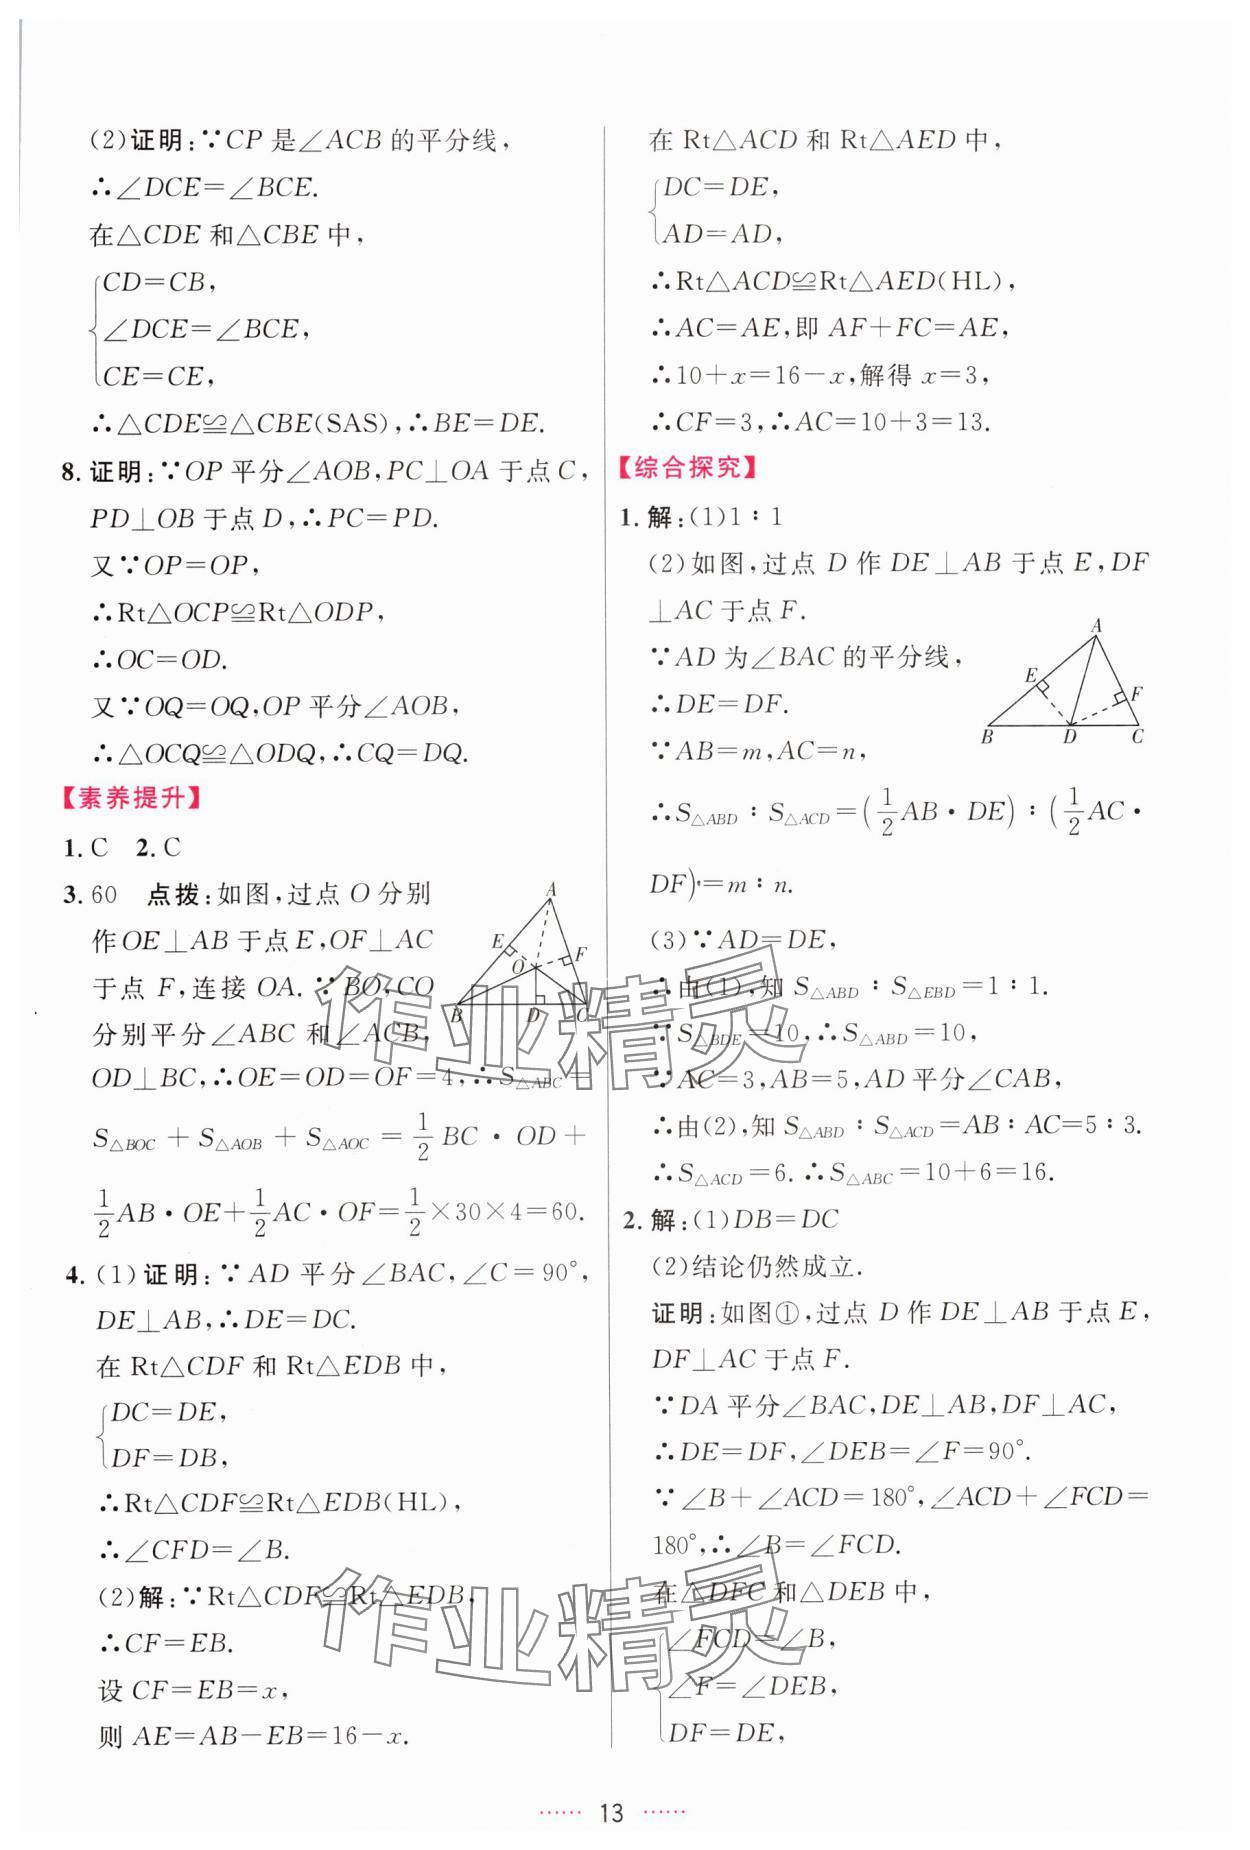 (2)证明:∵CP是∠ACB的平分线,
∴∠DCE=∠BCE.
在△CDE和△CBE中,
CD=CB,
∠DCE=∠BCE,
CE=CE,
∴△CDE≌△CBE(SAS),∴BE=DE.
8.证明:∵OP平分∠AOB,PC⊥OA于点C,
PD⊥OB于点D,∴PC=PD.
又∵OP=OP,
∴Rt△OCP≌Rt△ODP,
∴OC=OD.
又∵OQ=OQ,OP平分∠AOB,
∴△OCQ≌△ODQ,∴CQ=DQ.
【素养提升】
1.C 2.C
3.60 点拨:如图,过点O分别
作OE⊥AB于点E,OF⊥AC
于点F,连接OA.∵BO,CO
分别平分∠ABC和∠ACB,
OD⊥BC,∴OE=OD=OF=4,∴S△ABC=
S△BOC+S△AOB+S△AOC=1/2BC·OD+
1/2AB·OE+1/2AC·OF=1/2×30×4=60.
A
E
O
F
B
D
C
4.(1)证明:∵AD平分∠BAC,∠C=90°,
DE⊥AB,∴DE=DC.
在Rt△CDF和Rt△EDB中,
DC=DE,
DF=DB,
∴Rt△CDF≌Rt△EDB(HL),
∴∠CFD=∠B.
(2)解:∵Rt△CDF≌Rt△EDB,
∴CF=EB.
设CF=EB=x,
则AE=AB-EB=16-x.
在Rt△ACD和Rt△AED中,
DC=DE,
AD=AD,
∴Rt△ACD≌Rt△AED(HL),
∴AC=AE,即AF+FC=AE,
∴10+x=16-x,解得x=3,
∴CF=3,∴AC=10+3=13.
【综合探究】
1.解:(1)1∶1
(2)如图,过点D作DE⊥AB于点E,DF
⊥AC于点F.
∵AD为∠BAC的平分线,
∴DE=DF.
∵AB=m,AC=n,
∴S△ABD∶S△ACD=(1/2AB·DE)∶(1/2AC·
DF)=m∶n.
A
E
F
B
D
C
(3)∵AD=DE,
∴由(1),知S△ABD∶S△EBD=1∶1.
∵S△BDE=10,∴S△ABD=10,
∵AC=3,AB=5,AD平分∠CAB,
∴由(2),知S△ABD∶S△ACD=AB∶AC=5∶3.
∴S△ACD=6.∴S△ABC=10+6=16.
2.解:(1)DB=DC
(2)结论仍然成立.
证明:如图①,过点D作DE⊥AB于点E,
DF⊥AC于点F.
∵DA平分∠BAC,DE⊥AB,DF⊥AC,
∴DE=DF,∠DEB=∠F=90°.
∵∠B+∠ACD=180°,∠ACD+∠FCD=
180°,∴∠B=∠FCD.
在△DFC和△DEB中,
∠FCD=∠B,
∠F=∠DEB,
DF=DE,
作业精灵
作业精灵
······ 13 ······